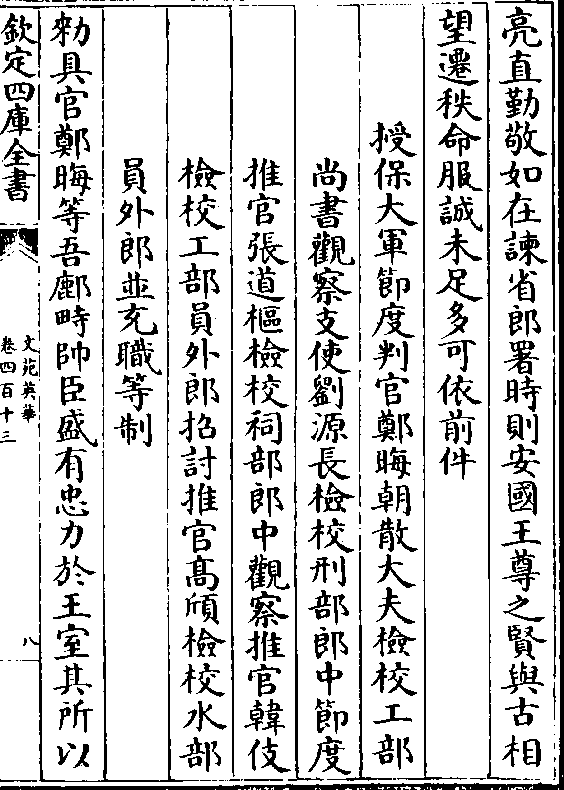 亮直勤敬如在諫省郎署時則安國王尊之賢與古相
望遷秩命服誠未足多可依前件
授保大軍節度判官鄭晦朝散大夫檢校工部
尚書觀察支使劉源長檢校刑部郎中節度
推官張道樞檢校祠部郎中觀察推官韓伎
檢校工部員外郎招討推官髙頎檢校水部
員外郎並充職等制
勑具官鄭晦等吾鄜畤帥臣盛有忠力於王室其所以
欽定四庫全書
文苑英華
卷四百十三
八